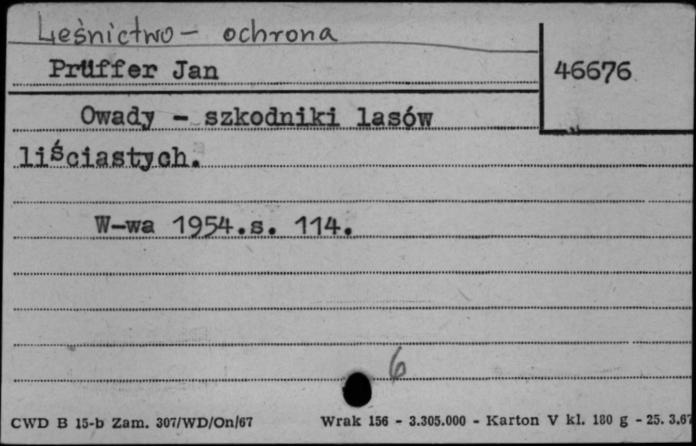 Leśnictwo - ochrona
Prüffer Jan
46676
Owady - szkodniki lasów
liściastych.
W-wa 1954.s. 114.
6
CWD B 15-b Zam. 307/WD/On/67 Wrak 156 - 3.305.000 - Karton V kl. 180 g - 25. 3.67